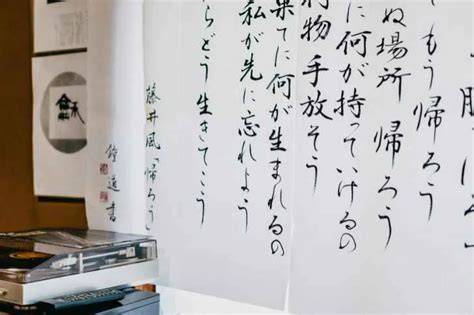 てもう帰ろう
ぬ場所 帰ろう
に何が持っていけるの
物 手放そう
果てに何が生まれるの
私が先に忘れよう
らどう生きてこう
藤井風「帰ろう」
書